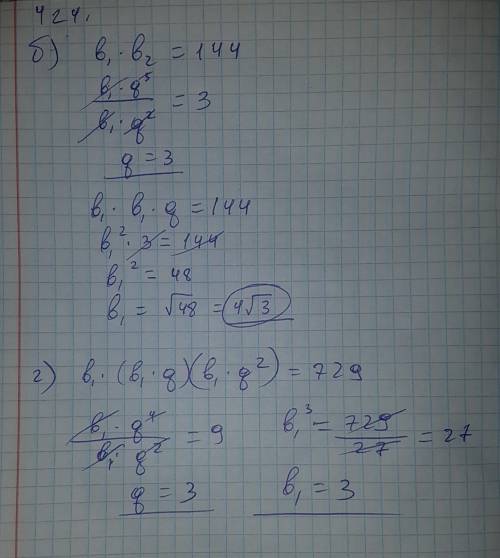 424.
б) b₁ · b₂ = 144
b₁ · q³ / b₁ · q² = 3
q = 3
b₁ · b₁ · q = 144
b₁² · 3 = 144
b₁² = 48
b₁ = √48 = 4√3
г) b₁ · (b₁ · q)(b₁ · q²) = 729
b₁ · q⁴ / b₁ · q² = 9    b₁³ = 729 / 27 = 27
q = 3    b₁ = 3